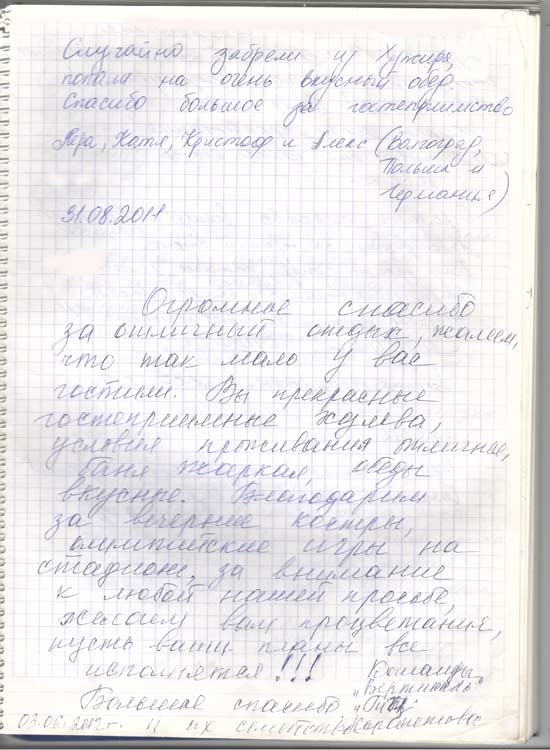 Случайно забрели из Хужира,
попали на очень вкусный обед.
Спасибо большое за гостеприимство
Лера, Катя, Кристоф и Алекс (Волгоград,
Польша и
Германия)
31.08.2011
Огромное спасибо
за отличный отдых, жалеем,
что так мало у вас
гостили. Вы прекрасные
гостеприимные хозяева,
условия проживания отличные,
баня жаркая, обеды
вкусные. Благодарим
за вечерние костры,
олимпийские игры на
стадионе, за внимание
к любой нашей просьбе,
желаем вам процветания,
пусть ваши планы все
исполнятся!!! Команды
Большое спасибо
03.06.2012г. и их семейства